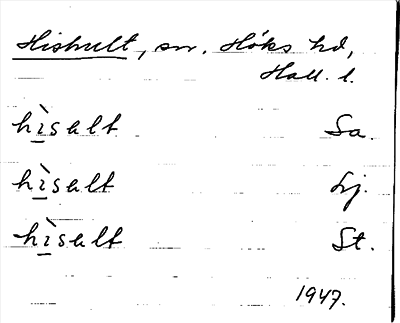 Hishult, sn. Höks hd,
Hall. l.
hìsalt Sa.
hìsalt Lj.
hìsalt St.
1947.